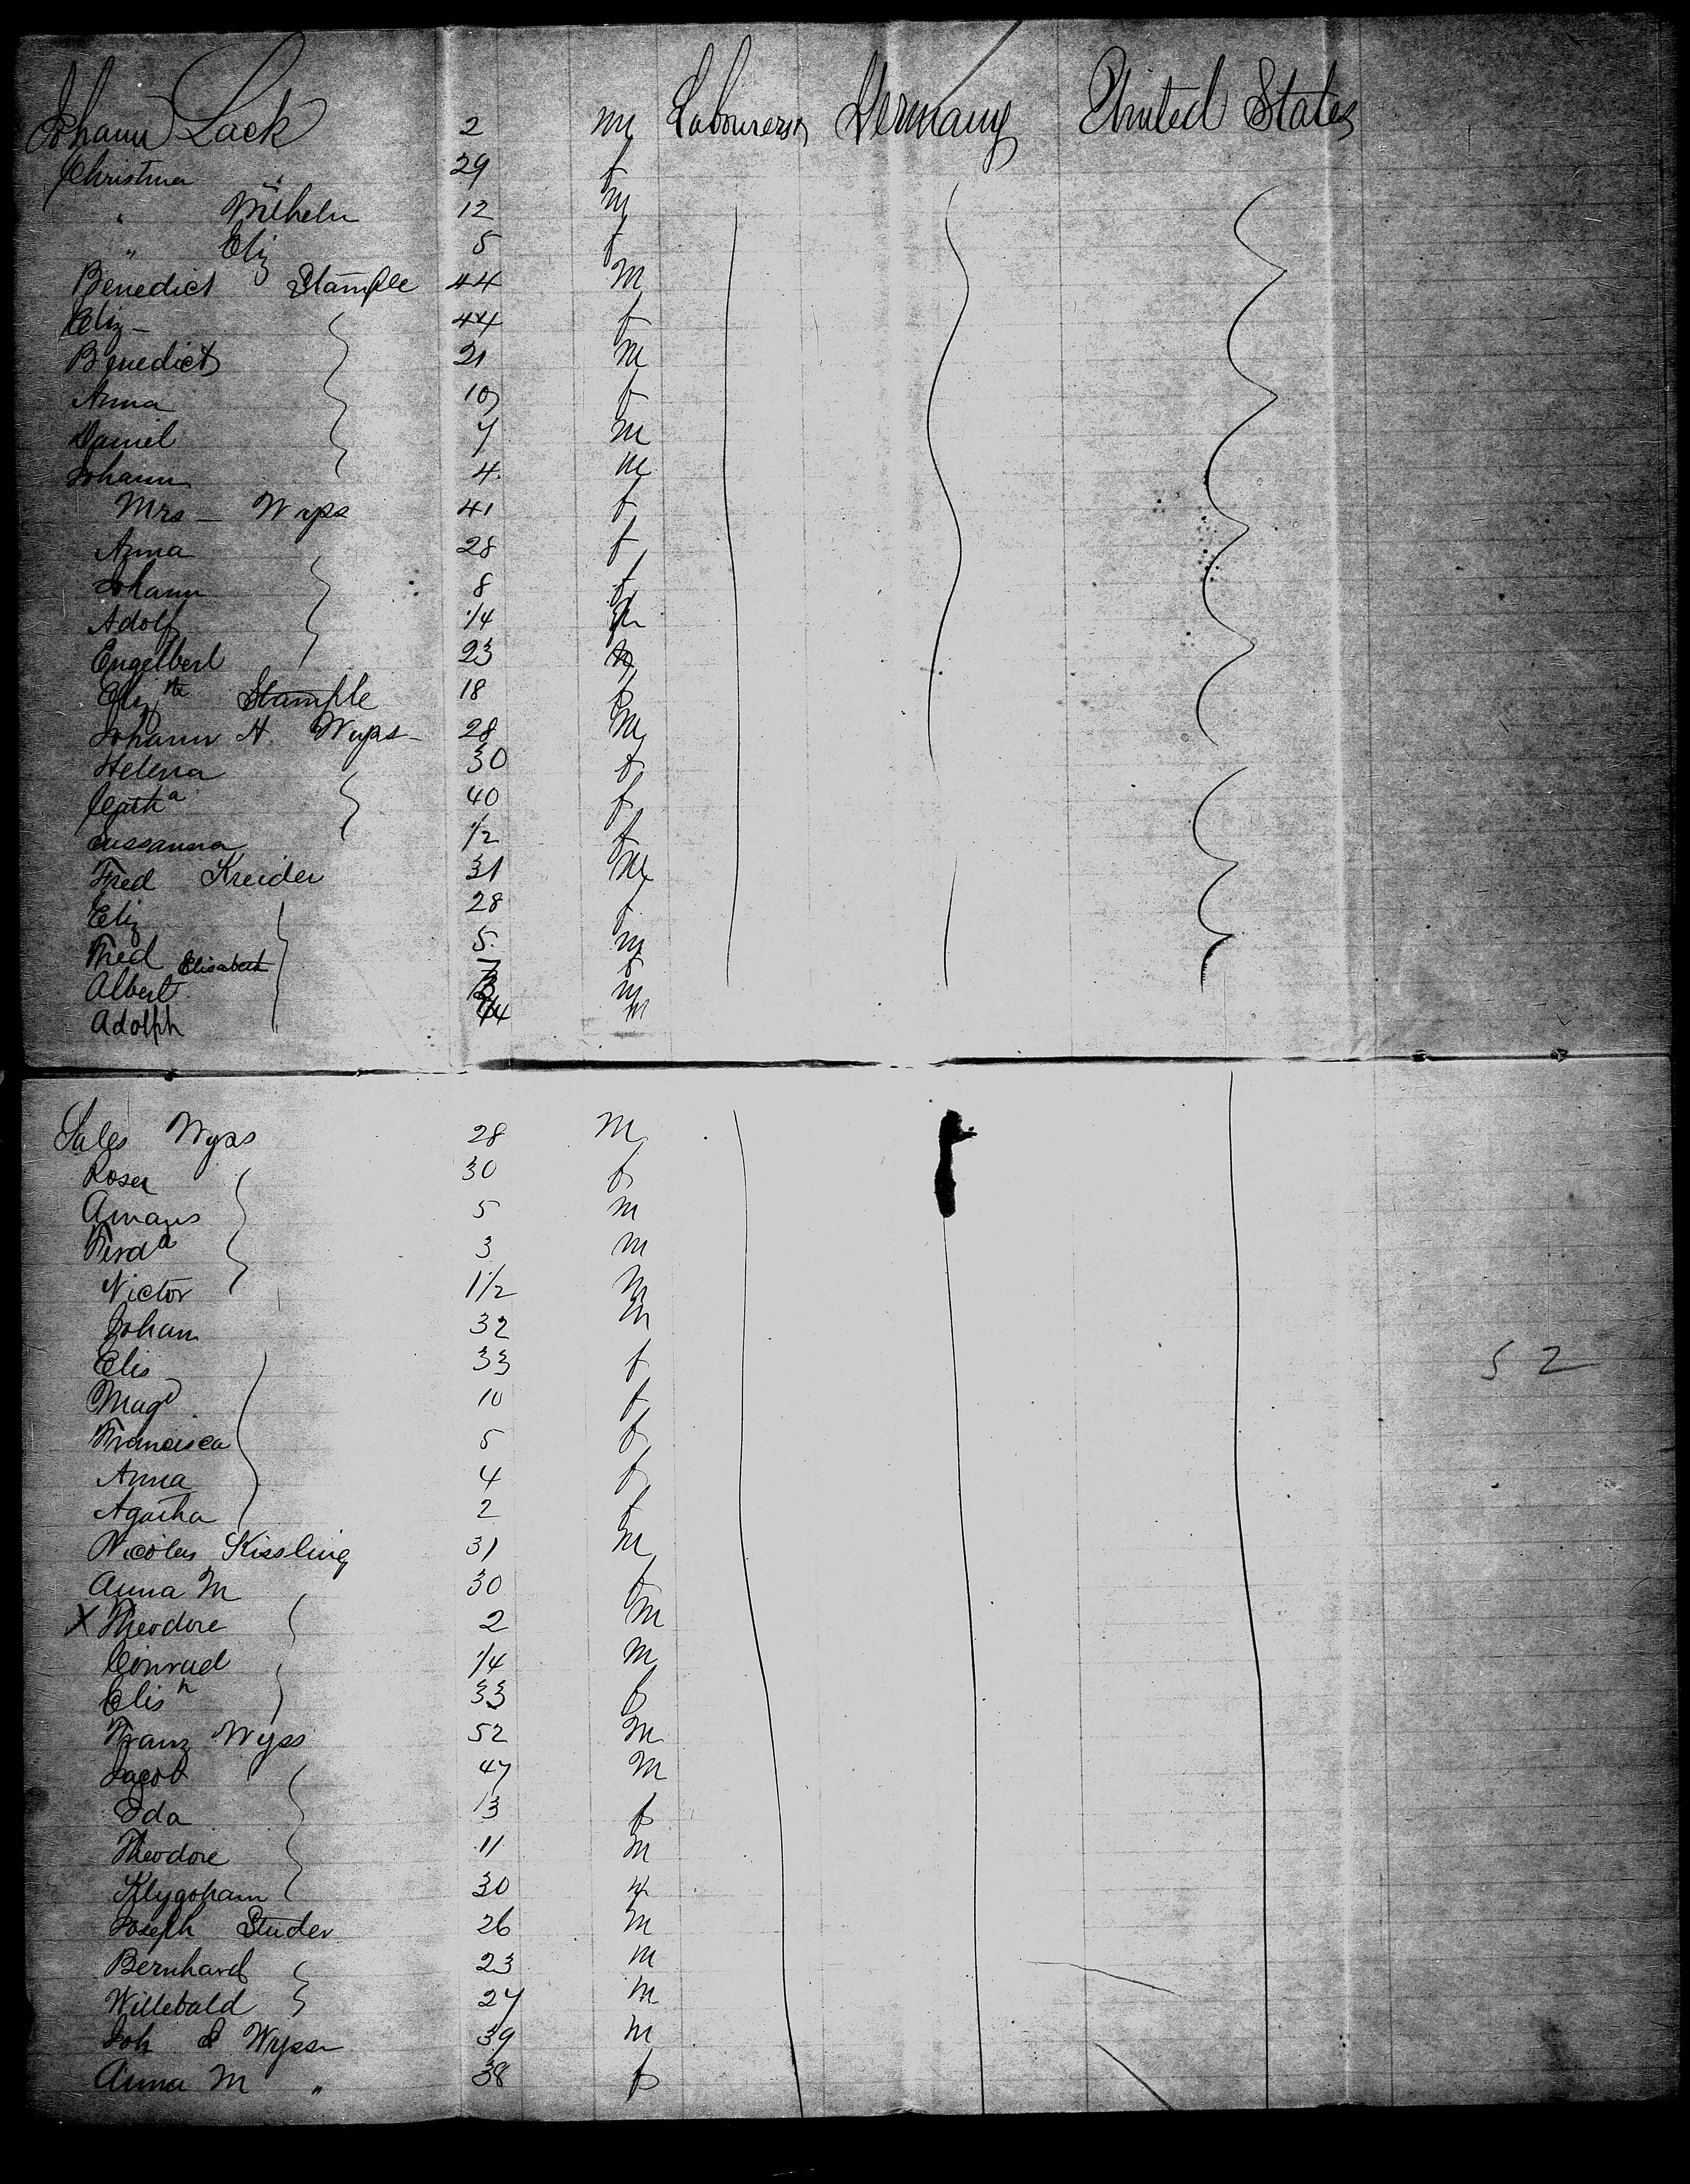 Johann Lack 2 m Labourers Germany United States
Christina " 29 f
" Wilhelm 12 m
" Eliz 5 f
Benedict Stample 44 M
Eliz - 44 f
Benedict 21 M
Anna 10 f
Daniel 7 M
Johann 4 M
Mrs - Wyss 41 f
Anna 28 f
Johann 8
Adolf 1/4
Engelbert 23
Elizth Stample 18 f
Johann H. Wyss - 28 M
Helena 30 f
Catha 40 f
Sussanna 1/2 f
Fred Kreider 31 M
Eliz 28 f
Fred 5 m
Elisabeth f
Albert m
Adolph m
Sales Wyss 28 M
Rosa 30 f
Amans 5 m
Ferdd 3 m
Victor 1 1/2 M
Johan 32 m
Elis 33 f
Magd 10 f
Francisca 5 f
Anna 4 f
Agatha 2 f
Nicolas Kissling 31 M
Anna M 30 f
X Theodore 2 M
Conrad 1/4 M
Elish 33 f
52
Franz Wyss 52 M
Jacob 47 M
Ida 13 f
Theodore 11 M
30
Joseph Studer 26 M
Bernhard 23 M
Willebald 27 M
Joh Wyss 39 M
Anna M " 38 f